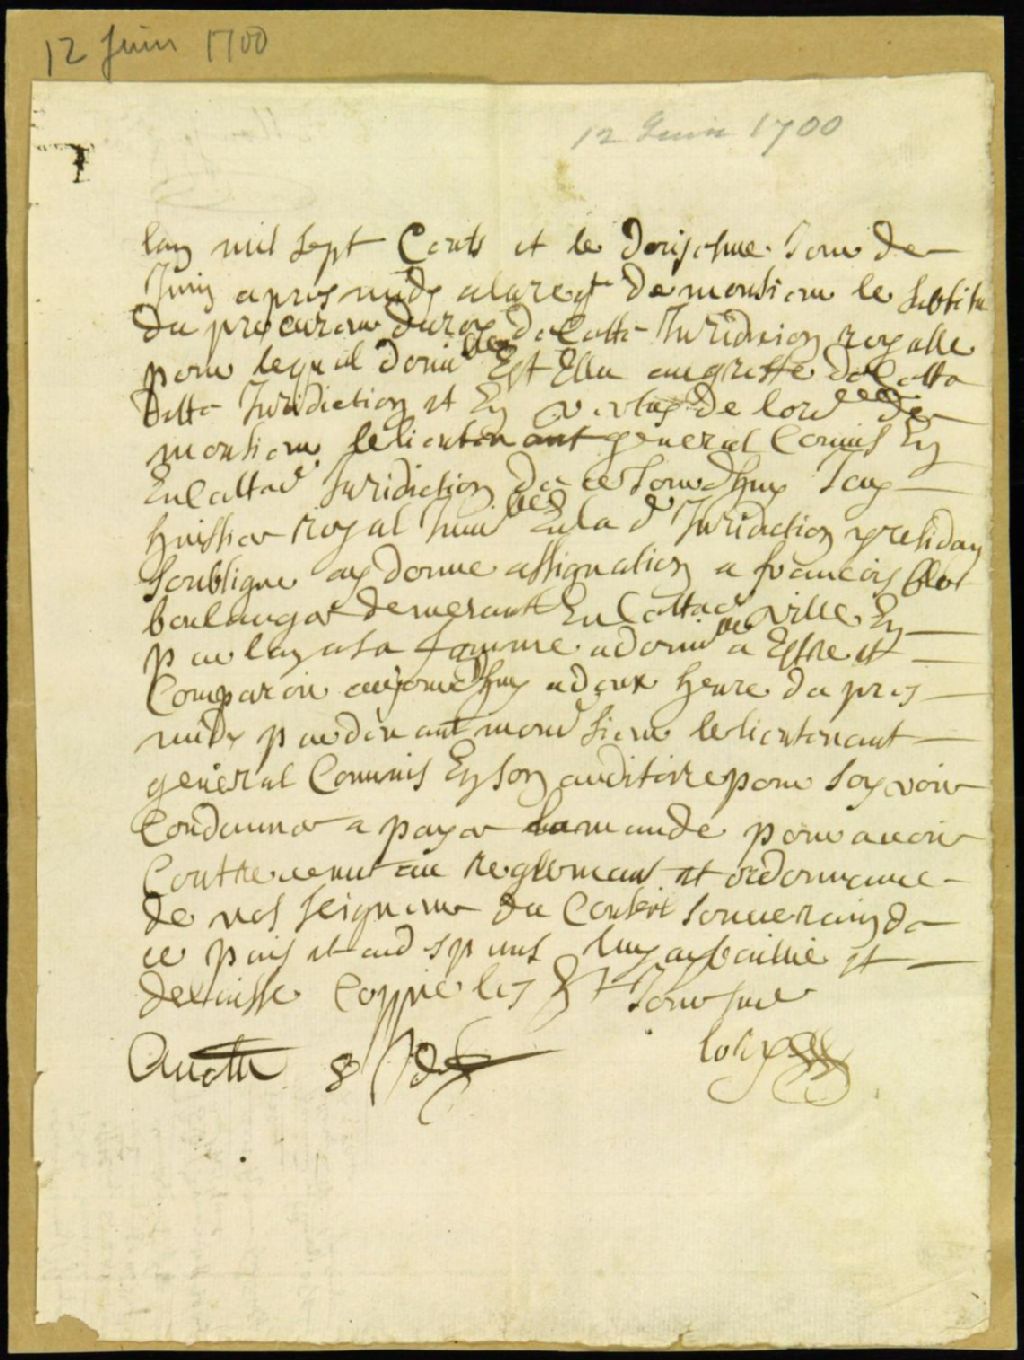 12 Juin 1700
12 Juin 1700
lan mil sept Cents et le douziesme Jour de
Juin apres midy a la req^t de monsieur le substitu
du procureur du roy de Cette Juridicion royalle
pour lequel domi^lle Est Elleu au greffe de Cette
ditte Juridiction et En vertu de lord^ce de
monsieur le lieutenant general Commis En
En Cette d^e Juridiction de ce Jourdhuy Jay
huissier royal Immat^ lad^ Juridiction residan
soubsigne ay donne assignation a francois
boulanger demeurant En Cette d^e ville En
parlant a sa femme a domi^lle a Estre et
Comparoir aujourdhuy a deux heure dapres
midy pardevant mondsieur le lieutenant
general Commis En son auditoire pour soy voir
Condamner a payer lamande pour avoir
Contrevenut au reglemant et ordonnance
de nos seigneur du Conseil souverain de
ce pais et aud spens luy ay baillie et
delaisse Coppie les Jour sud